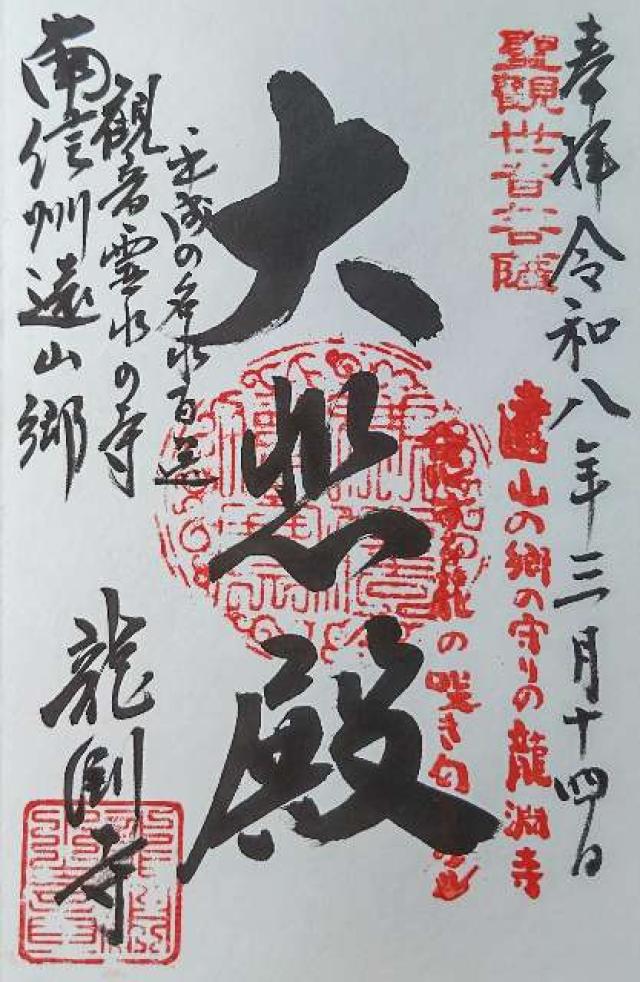 奉拝 令和八年三月十四日
聖觀世音菩薩
遠山の郷の守りの龍淵寺
大悲殿
平成の名水百選
観音霊水の寺
南信州遠山郷
龍淵寺